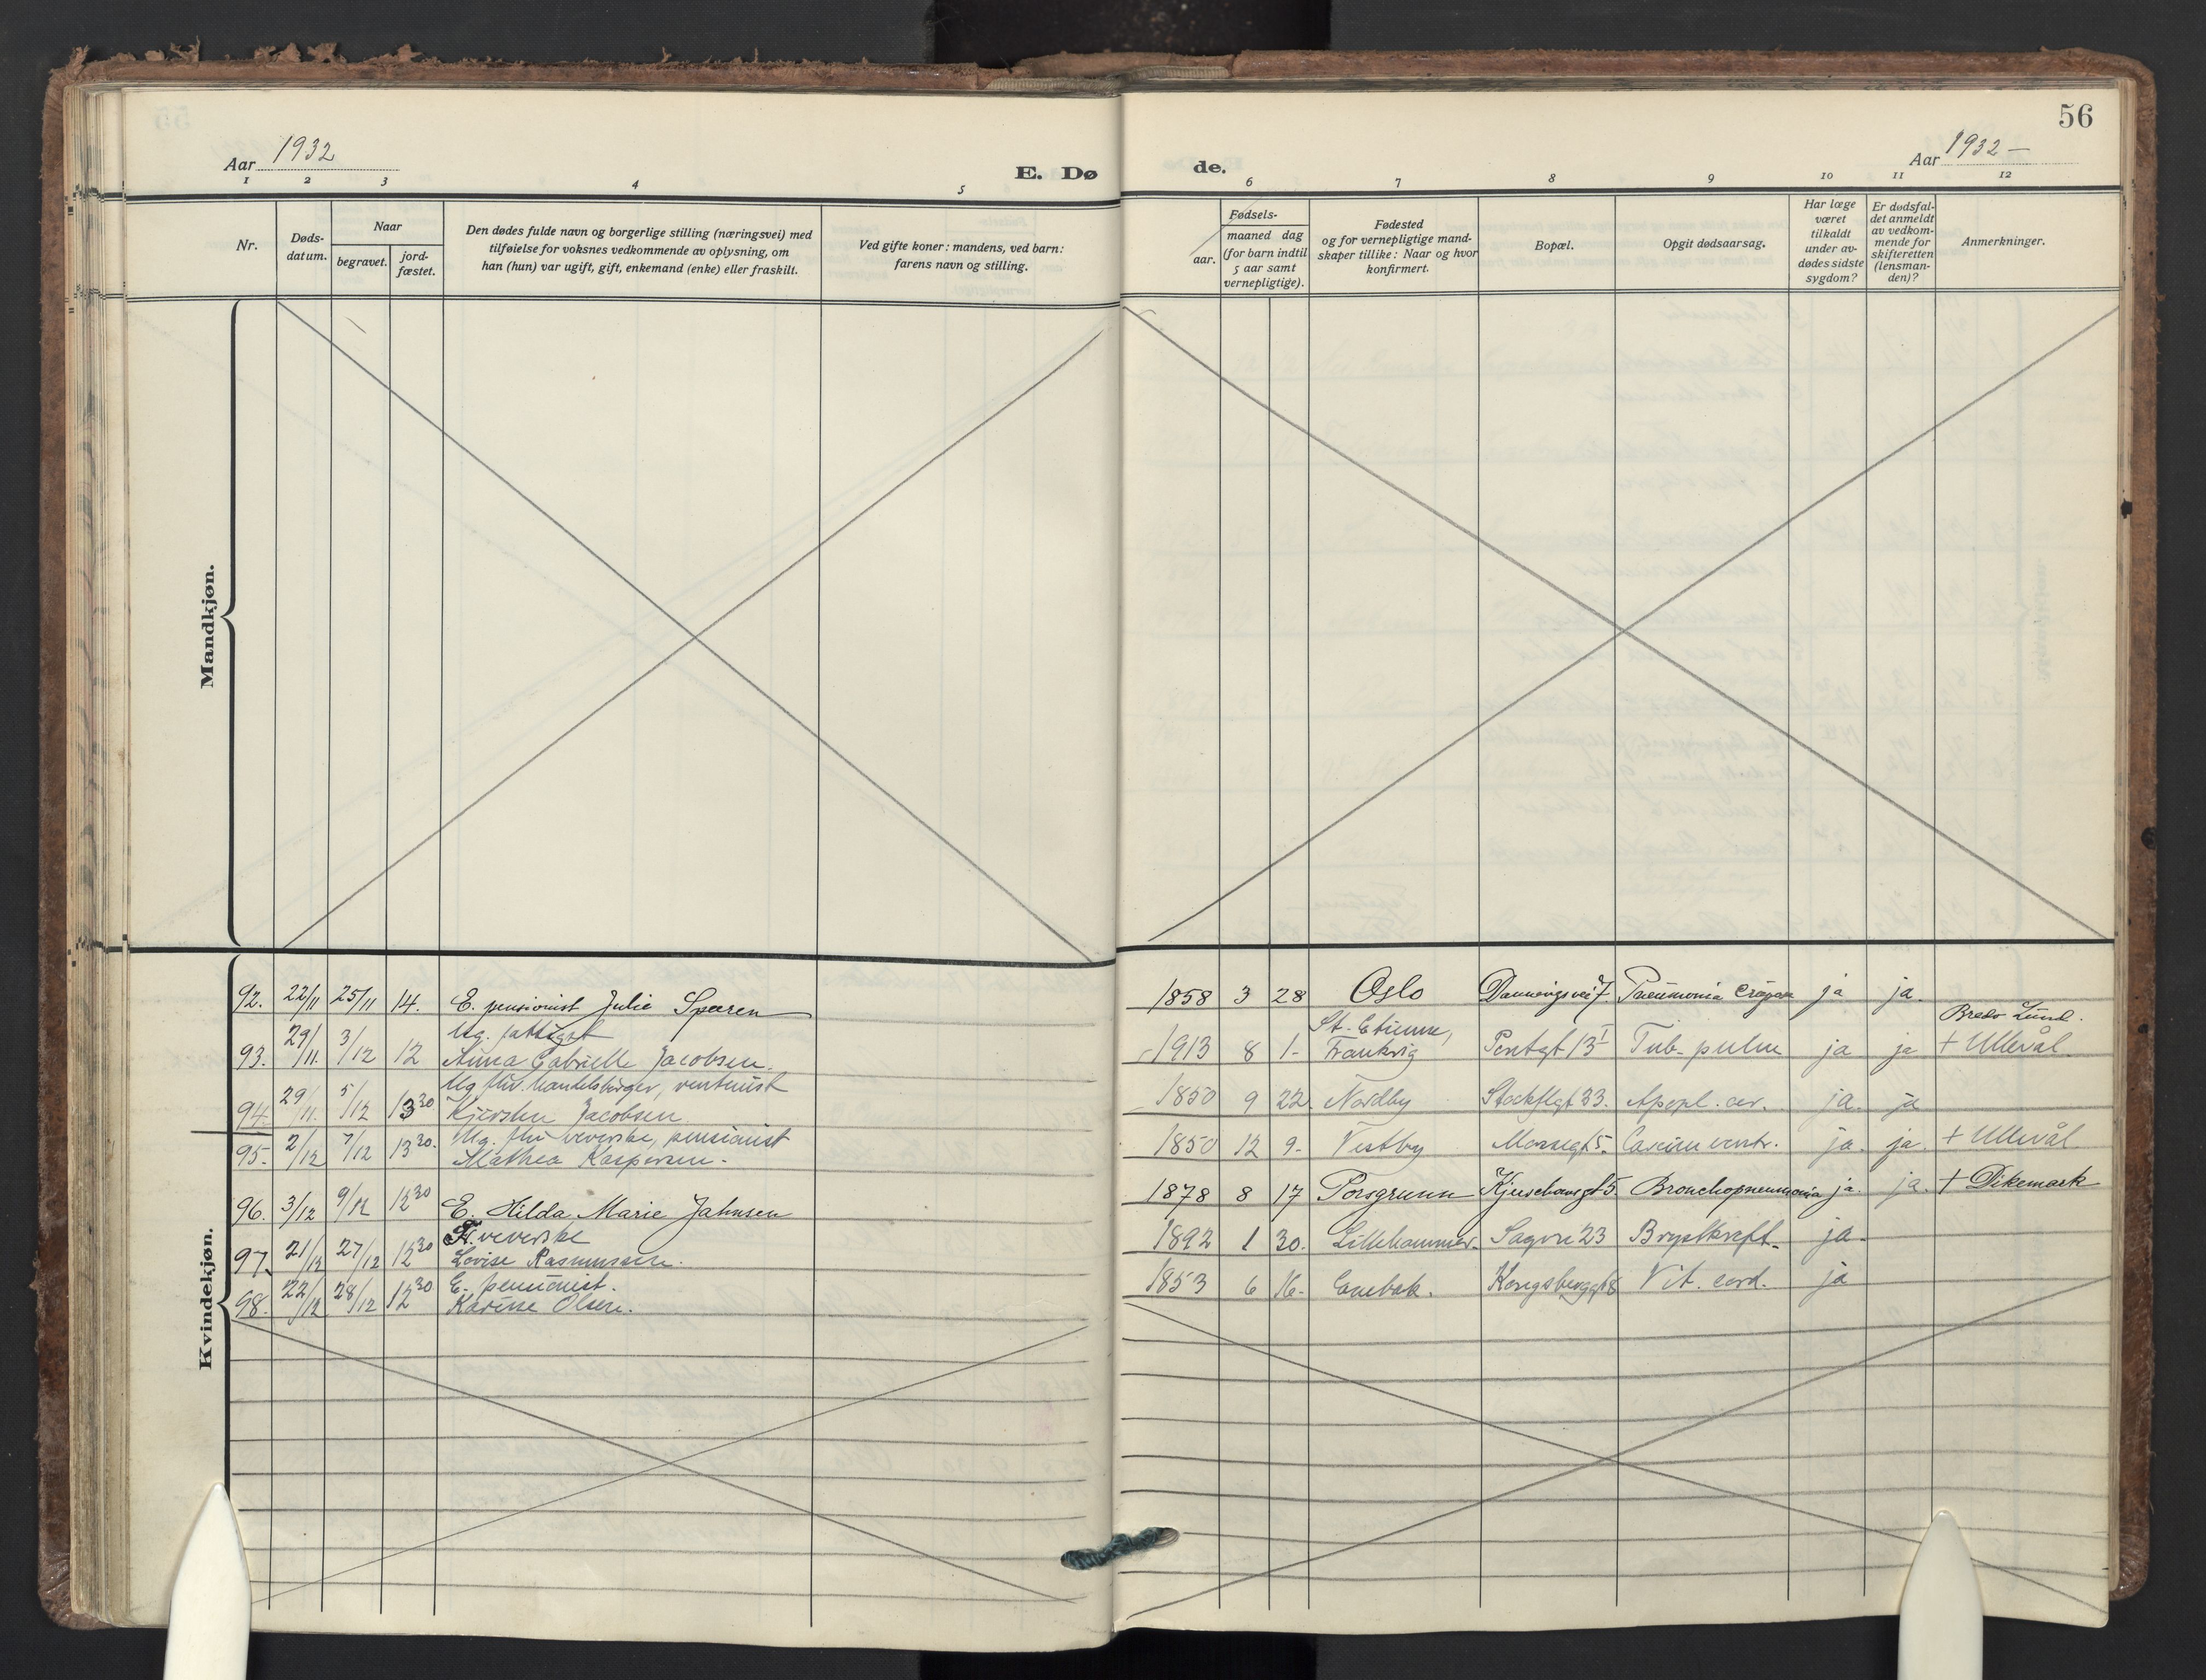 56
Aar 1932
E. Dø
de.
Aar 1932 —
1 2 3 4 5
6 7 8 9 10 11 12
Nr.
Døds-
datum.
Naar
begravet.
jord-
fæstet.
Den dødes fulde navn og borgerlige stilling (næringsvei) med
tilføielse for voksnes vedkommende av oplysning, om
han (hun) var ugift, gift, enkemand (enke) eller fraskilt.
Ved gifte koner: mandens, ved barn:
farens navn og stilling.
Fødsels-
aar.
maaned dag
(for barn indtil
5 aar samt
vernepligtige).
Fødested
og for vernepligtige mand-
skaper tillike: Naar og hvor
konfirmert.
Bopæl.
Opgit dødsaarsag.
Har læge
været
tilkaldt
under av-
dødes sidste
sygdom?
Er dødsfal-
det anmeldt
av vedkom-
mende for
skifteretten
(lensman-
den)?
Anmerkninger.
Mandkjøn.
Kvindekjøn.
92. 22/11 25/11 14. E. pensionist Julie Sparen 1858 3 28 Oslo Pneumonia ja ja.
Ug. St. Etienne, Bredo Lund.
93. 29/11. 3/12 12 Anna Gabrielle Jacobsen. 1913 8 1- Frankrig 13 I Tub. pulm ja ja + Ullevål
Ug fhv. handelsborger,
94. 29/11. 5/12 13 30 Kjersten Jacobsen 1850 9 22 Nordby 33. Apopl. cer. ja. ja
Ug. fhv veverske, pensionist
95. 2/12 7/12 13 30. Mathea Kaspersen. 1850 12 9- Vestby Mossegt 5. ventr. ja. ja. + Ullevål
96. 3/12 9/12 12 30 E. Hilda Marie Jahnsen 1878 8 17 Porsgrunn Bronchopneumonia ja. ja. + Dikemark
F. veverske
97. 21/12 27/12 12 30 Lovise Rasmussen. 1892 1 30. Lillehammer. Sagvn 23 Brystkreft. ja.
E. pensionist.
98. 22/12 28/12 12 30 Karine Olsen. 1853 6 16. Enebak. Kongsberggt 8 Vit. cord. ja